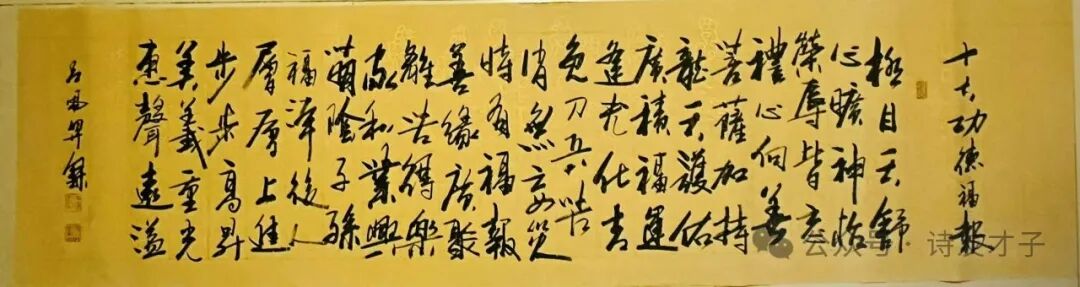 十大功德福報
極目天舒
心曠神怡
榮辱皆忘
禮心向善
菩薩加持
龍天護佑
廣積福運
逢凶化吉
免刀兵苦
消無妄災
時有福報
善緣廣聚
離苦得樂
家和業興
萌陰子孫
福澤後人
層層上進
步步高昇
美義重光
惠聲遠溢
公众号 · 诗 才子